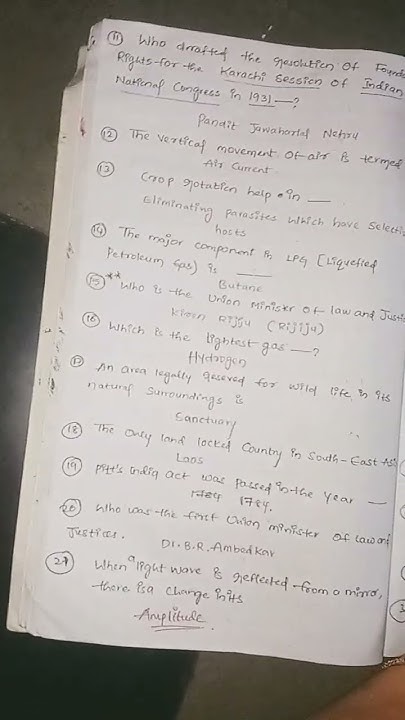 11 Who drafted the resolution Of
Rights for the Karachi Session of Indian
National Congress in 1931 —?
Pandit Jawaharlal Nehru
12 The vertical movement Of air is termed
Air Current
13 Crop rotation help in —
Eliminating parasites which have
hosts
14 The major component in LPG [Liquefied
Petroleum Gas) is —
Butane
15 ** Who is the Union Minister of law and
Kiren Rijju (Rijiju)
16 Which is the lightest gas —?
Hydrogen
An area legally reserved for wild life in its
natural surroundings is
Sanctuary
18 The Only land locked Country in South-East
Laos
19 Pitt's India act was passed in the year —
1784 1784.
20 Who was the first Union minister Of law and
Justices.
Dr. B.R. Ambedkar
21 When a light wave is reflected from a mirror,
there is a change in its
Amplitude.